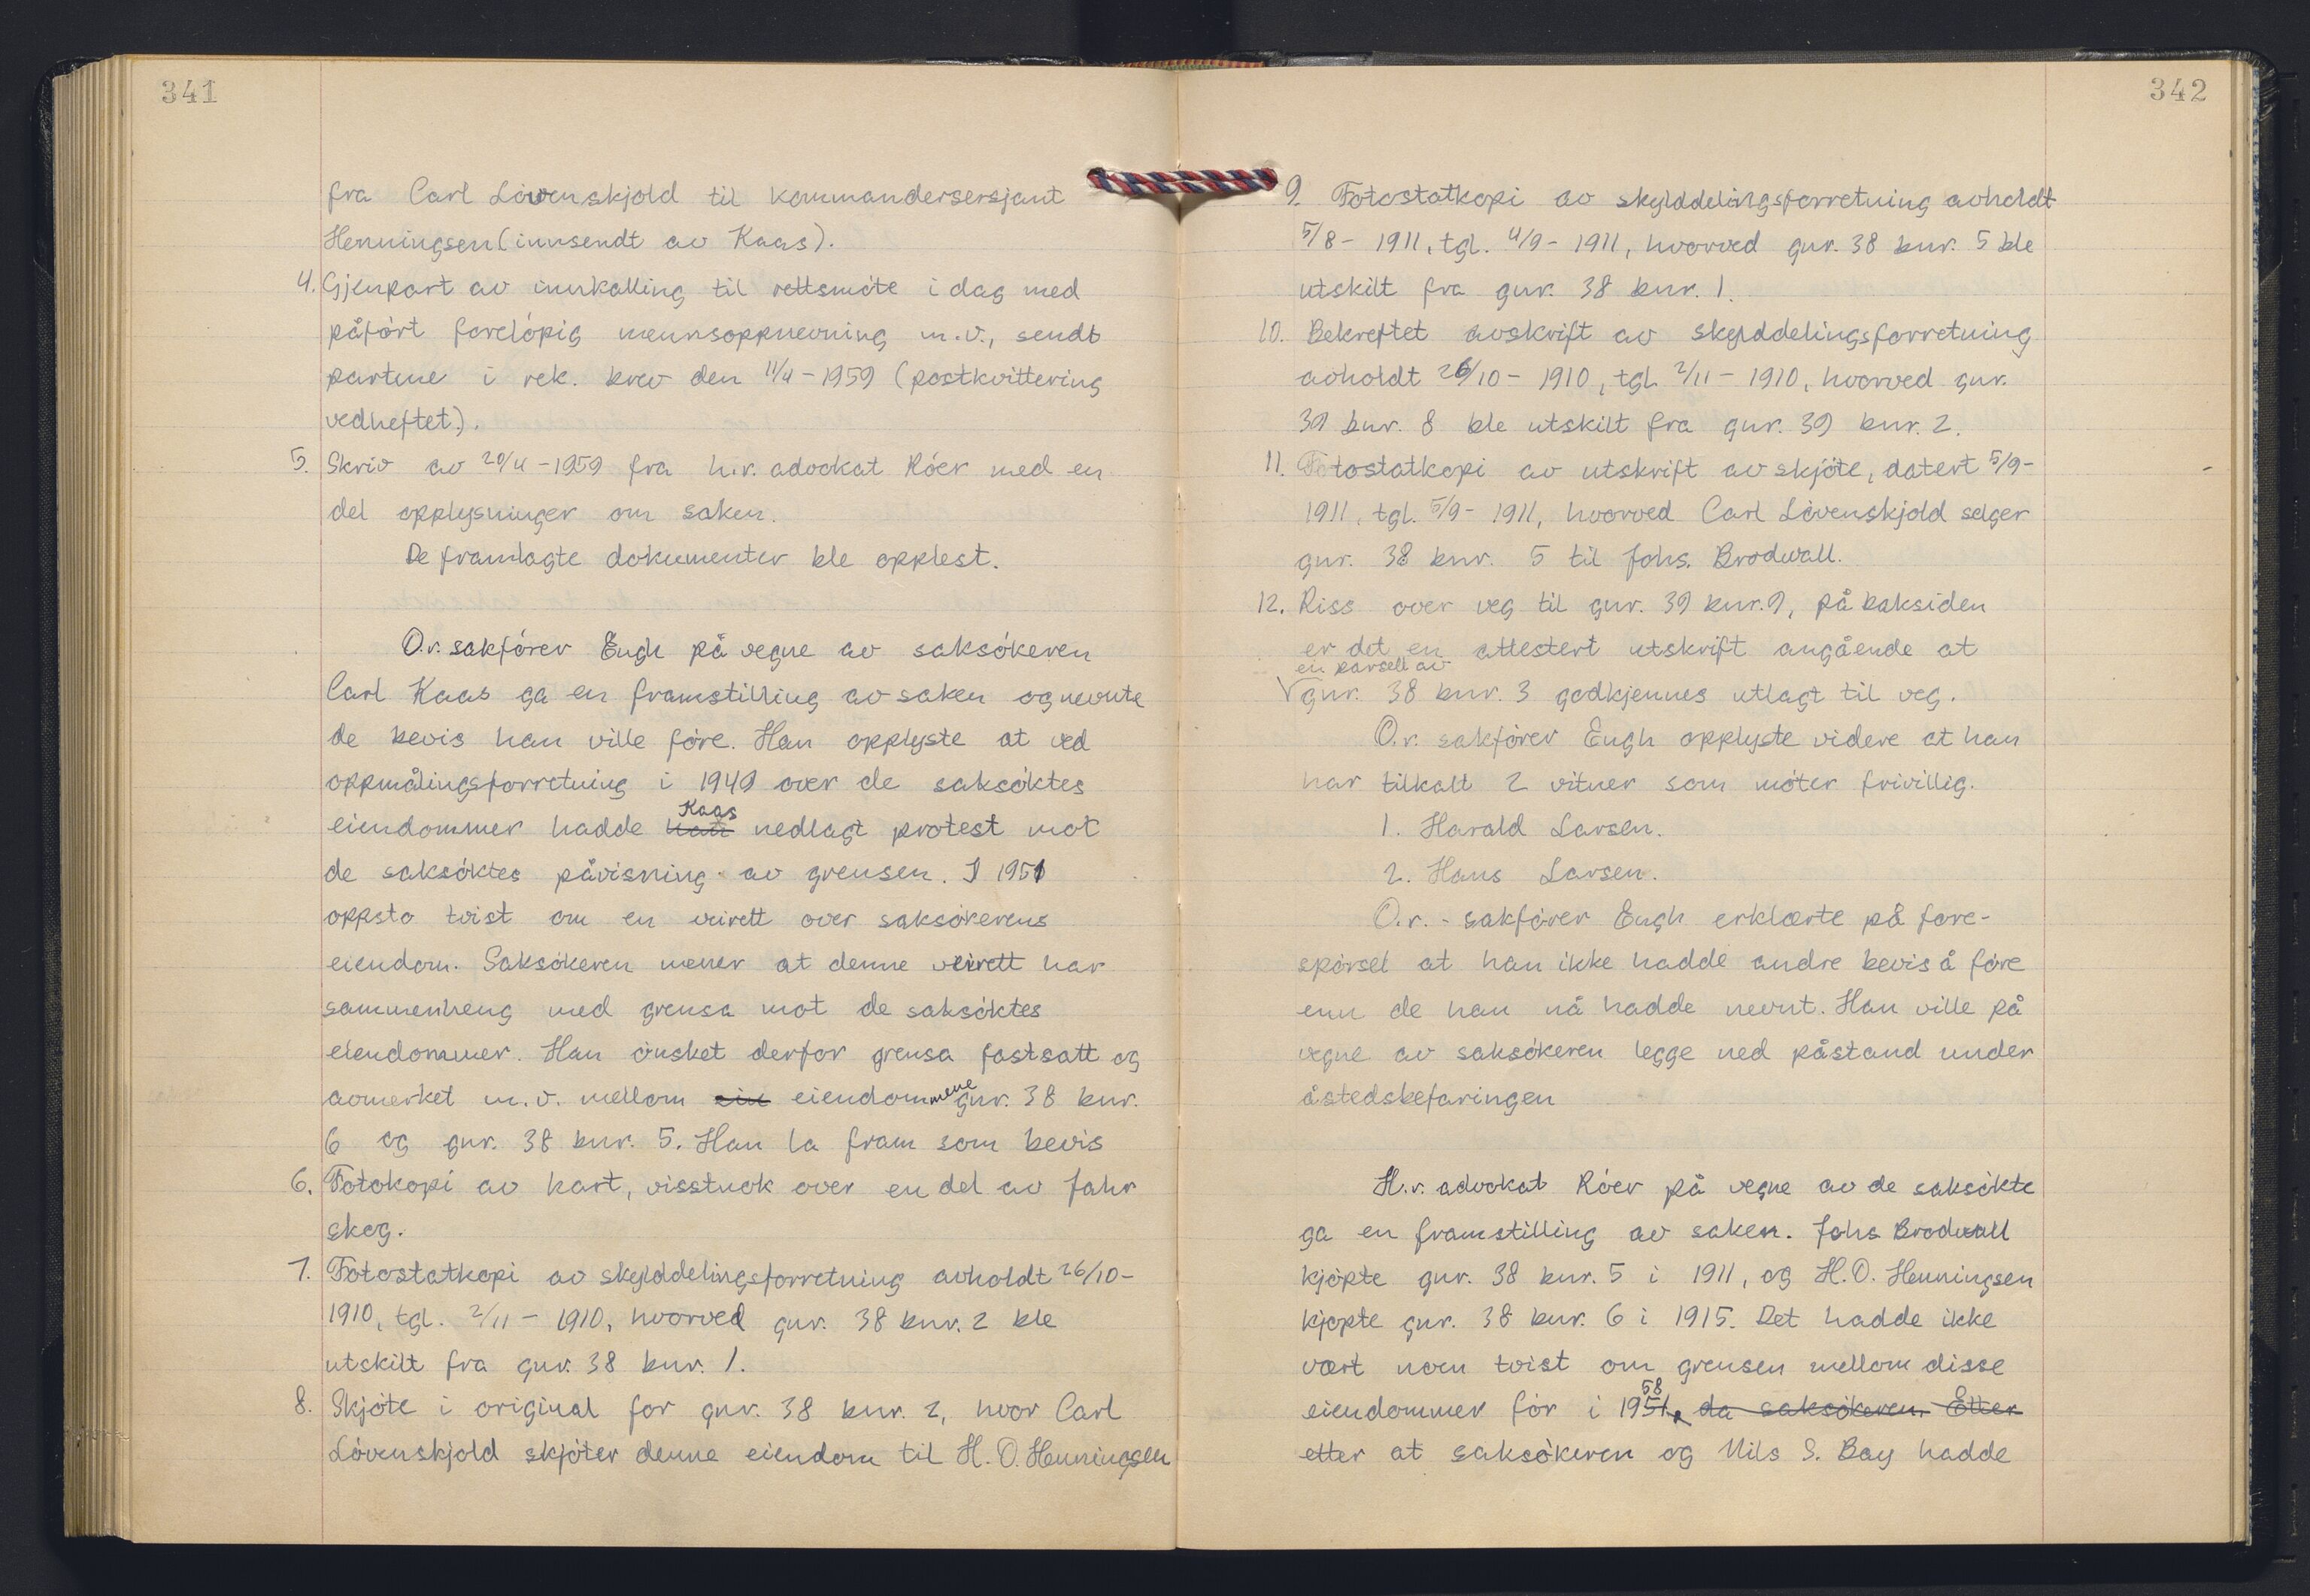 341
fra Carl Lövenskjold til kommandersersjant
Henningsen (innsendt av Kaas).
4. Gjenpart av innkalling til rettsmöte i dag med
påfört forelöpig mennsoppnevning m.v., sendt
partene i rek. brev den 11/4-1959 (postkvittering
vedheftet).
5. Skriv av 20/4-1959 fra h.r. advokat Röer med en
del opplysninger om saken.
De framlagte dokumenter ble opplest.
O.r. sakförer Engh på vegne av saksökeren
Carl Kaas ga en framstilling av saken og nevnte
de bevis han ville före. Han opplyste at ved
oppmålingsforretning i 1949 over de saksöktes
Kaas
eiendommer hadde han nedlagt protest mot
de saksöktes påvisning av grensen. I 1951
oppsto tvist om en veirett over saksökerens
eiendom. Saksökeren mener at denne veirett har
sammenheng med grensa mot de saksöktes
eiendommer. Han önsket derfor grensa fastsatt og
avmerket m.v. mellom sin eiendommene gnr. 38 bnr.
6 og gnr. 38 bnr. 5. Han la fram som bevis
6. Fotokopi av kart, visstnok over en del av Jahr
skog.
7. Fotostatkopi av skylddelingsforretning avholdt 26/10-
1910, tgl. 2/11-1910, hvorved gnr. 38 bnr. 2 ble
utskilt fra gnr. 38 bnr. 1.
8. Skjöte i original for gnr. 38 bnr. 2, hvor Carl
Lövenskjold skjöter denne eiendom til H. O. Henningsen
342
9. Fotostatkopi av skylddelingsforretning avholdt
5/8-1911, tgl. 4/9-1911, hvorved gnr. 38 bnr. 5 ble
utskilt fra gnr. 38 bnr. 1.
10. Bekreftet avskrift av skylddelingsforretning
avholdt 26/10-1910, tgl. 2/11-1910, hvorved gnr.
39 bnr. 8 ble utskilt fra gnr. 39 bnr. 2.
11. Fotostatkopi av utskrift av skjöte, datert 5/9-
1911, tgl. 5/9-1911, hvorved Carl Lövenskjold selger
gnr. 38 bnr. 5 til Johs. Brodwall.
12. Riss over veg til gnr. 39 bnr. 9, på baksiden
er det en attestert utskrift angående at
en parsell av
√ gnr. 38 bnr. 3 godkjennes utlagt til veg.
O.r. sakförer Engh opplyste videre at han
har tilkalt 2 vitner som möter frivillig.
1. Harald Larsen.
2. Hans Larsen.
O.r.-sakförer Engh erklærte på fore-
spörsel at han ikke hadde andre bevis å före
enn de han nå hadde nevnt. Han ville på
vegne av saksökeren legge ned påstand under
åstedsbefaringen
H.r. advokat Röer på vegne av de saksökte
ga en framstilling av saken. Johs Brodwall
kjöpte gnr. 38 bnr. 5 i 1911, og H.O. Henningsen
kjöpte gnr. 38 bnr. 6 i 1915. Det hadde ikke
vært noen tvist om grensen mellom disse
58
eiendommer för i 1951, da saksökeren. Etter
etter at saksökeren og Nils S. Bay hadde